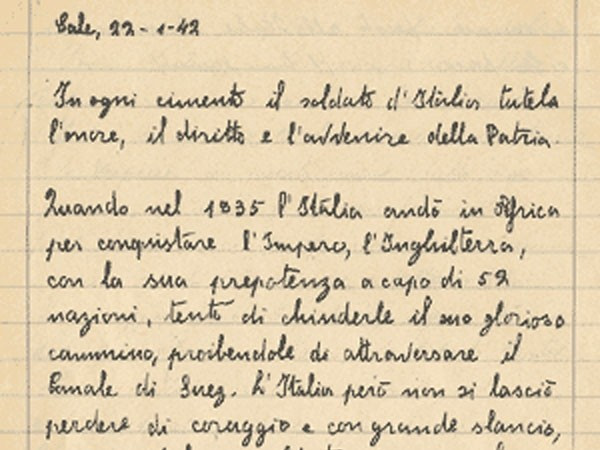 Sale, 22-1-42
In ogni cimento il soldato d'Italia tutela
l'onore, il diritto e l'avvenire della Patria.
Quando nel 1835 l'Italia andò in Africa
per conquistare l'Impero, l'Inghilterra,
con la sua prepotenza a capo di 52
nazioni, tentò di chiuderle il suo glorioso
cammino, proibendole di attraversare il
Canale di Suez. L'Italia però non si lasciò
perdere di coraggio e con grande slancio,